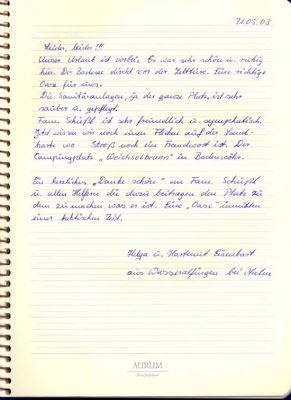 31.05.03
Leider, leider!!!
Unser Urlaub ist vorbei. Es war sehr schön u. ruhig
hier. Der Bodensee direkt vor der Zelttüre. Eine richtige
Oase für uns.
Die Sanitäranlagen, ja der ganze Platz ist sehr
sauber u. gepflegt.
Fam. Schießl ist sehr freundlich u. sympathisch.
Jetzt wissen wir noch einen Flecken auf der Land-
karte wo Streß noch ein Fremdwort ist. Der
Campingplatz „Weichselbrunn" in Bodenwöhr.
Ein herzliches „Danke schön" an Fam. Schießl
u. allen Helfern die dazu beitragen den Platz zu
dem zu machen was er ist. Eine „Oase" inmitten
einer hektischen Zeit.
Helga u. Hartmut Eisenbart
aus Wasseralfingen bei Aalen
AURUM